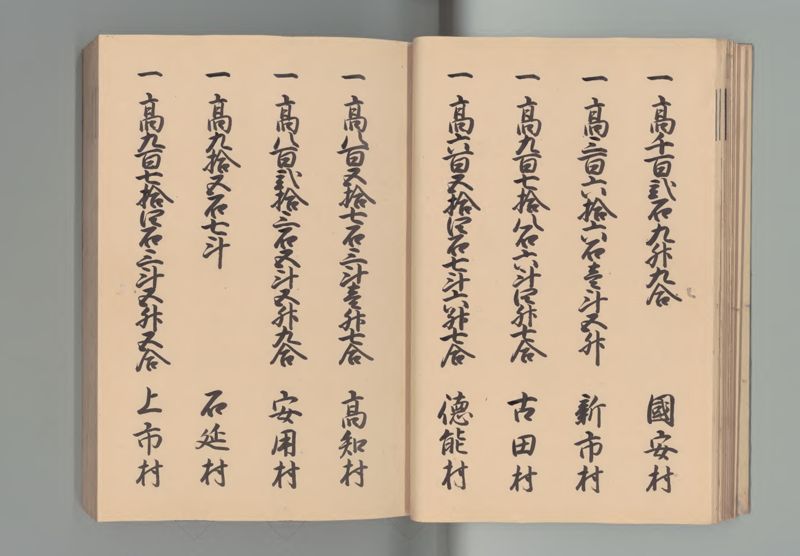 一高千百弐石九升九合 國安村
一高三百六拾六石壱斗五升 新市村
一高九百七拾八石六斗四升七合 古田村
一高六百五拾四石七斗六升七合 德能村
一高八百五拾七石三斗壱升七合 高知村
一高八百弐拾三石五斗五升九合 安用村
一高九拾五石七斗 石延村
一高九百七拾四石三斗五升五合 上市村